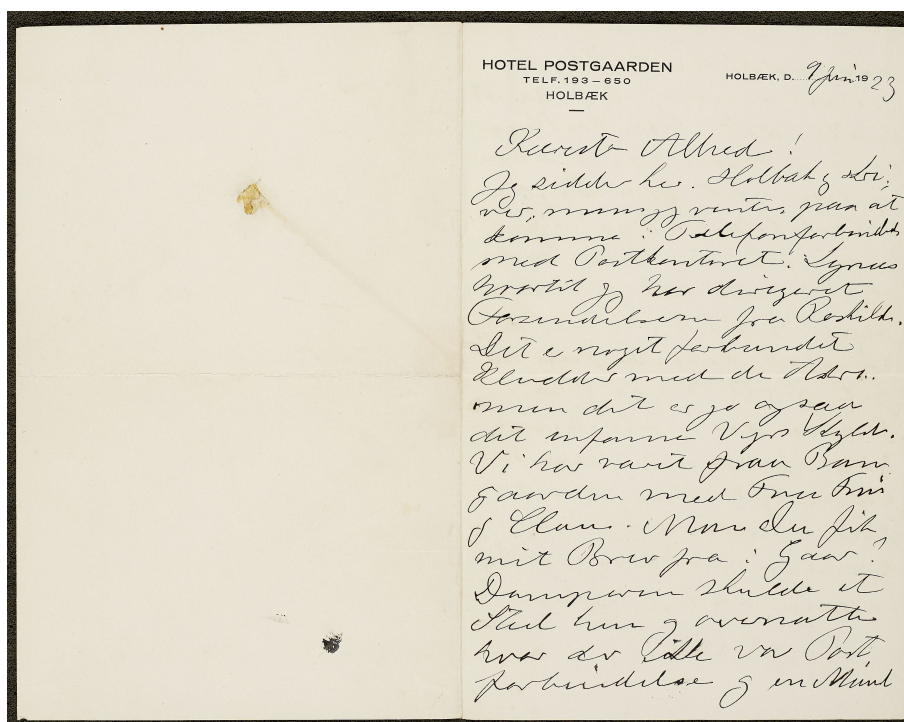 HOTEL POSTGAARDEN
TELF. 193 – 650
HOLBÆK
HOLBÆK, D. 9 Juni 1923
Kæreste Alfred!
Jeg sidder her i Holbæk og skri-
ver, mens jeg venter paa at
komme i Telefonforbindelse
med Postkontoret i
hvortil jeg har dirigeret
Forsendelserne fra Roskilde.
Det er noget forbandet
Kludder med de
men det er jo ogsaa
det infame Vejrs Skyld.
Vi har været paa Bon
gaarden med Fru Friis
og Claus. Mon du fik
mit Brev fra i Gaar?
Damperen skulde et
Sted hen og overnatte
hvor der ikke var Post
forbindelse og en Mand